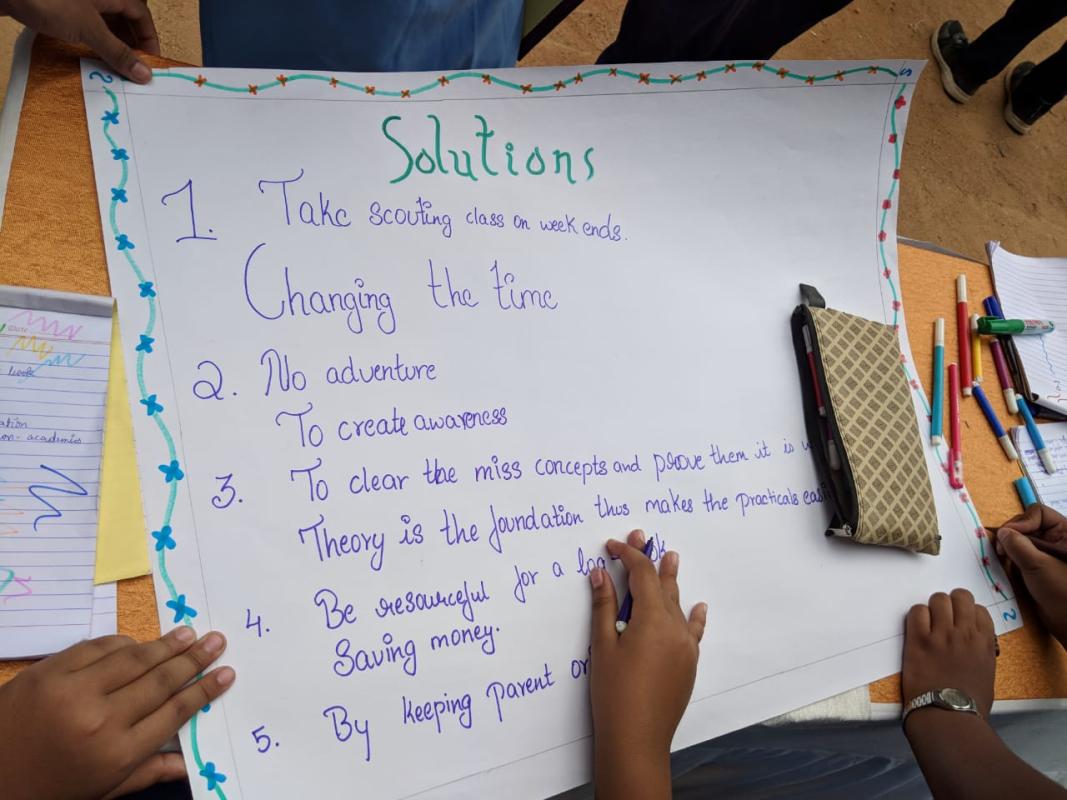 Solutions
1. Take scouting class on week ends.
Changing the time
2. No adventure
To create awareness
3. To clear the miss concepts and prove them it is
Theory is the foundation thus makes the practicals
4. Be resourceful for a log-
Saving money.
5. By keeping parent
ation
on- academics